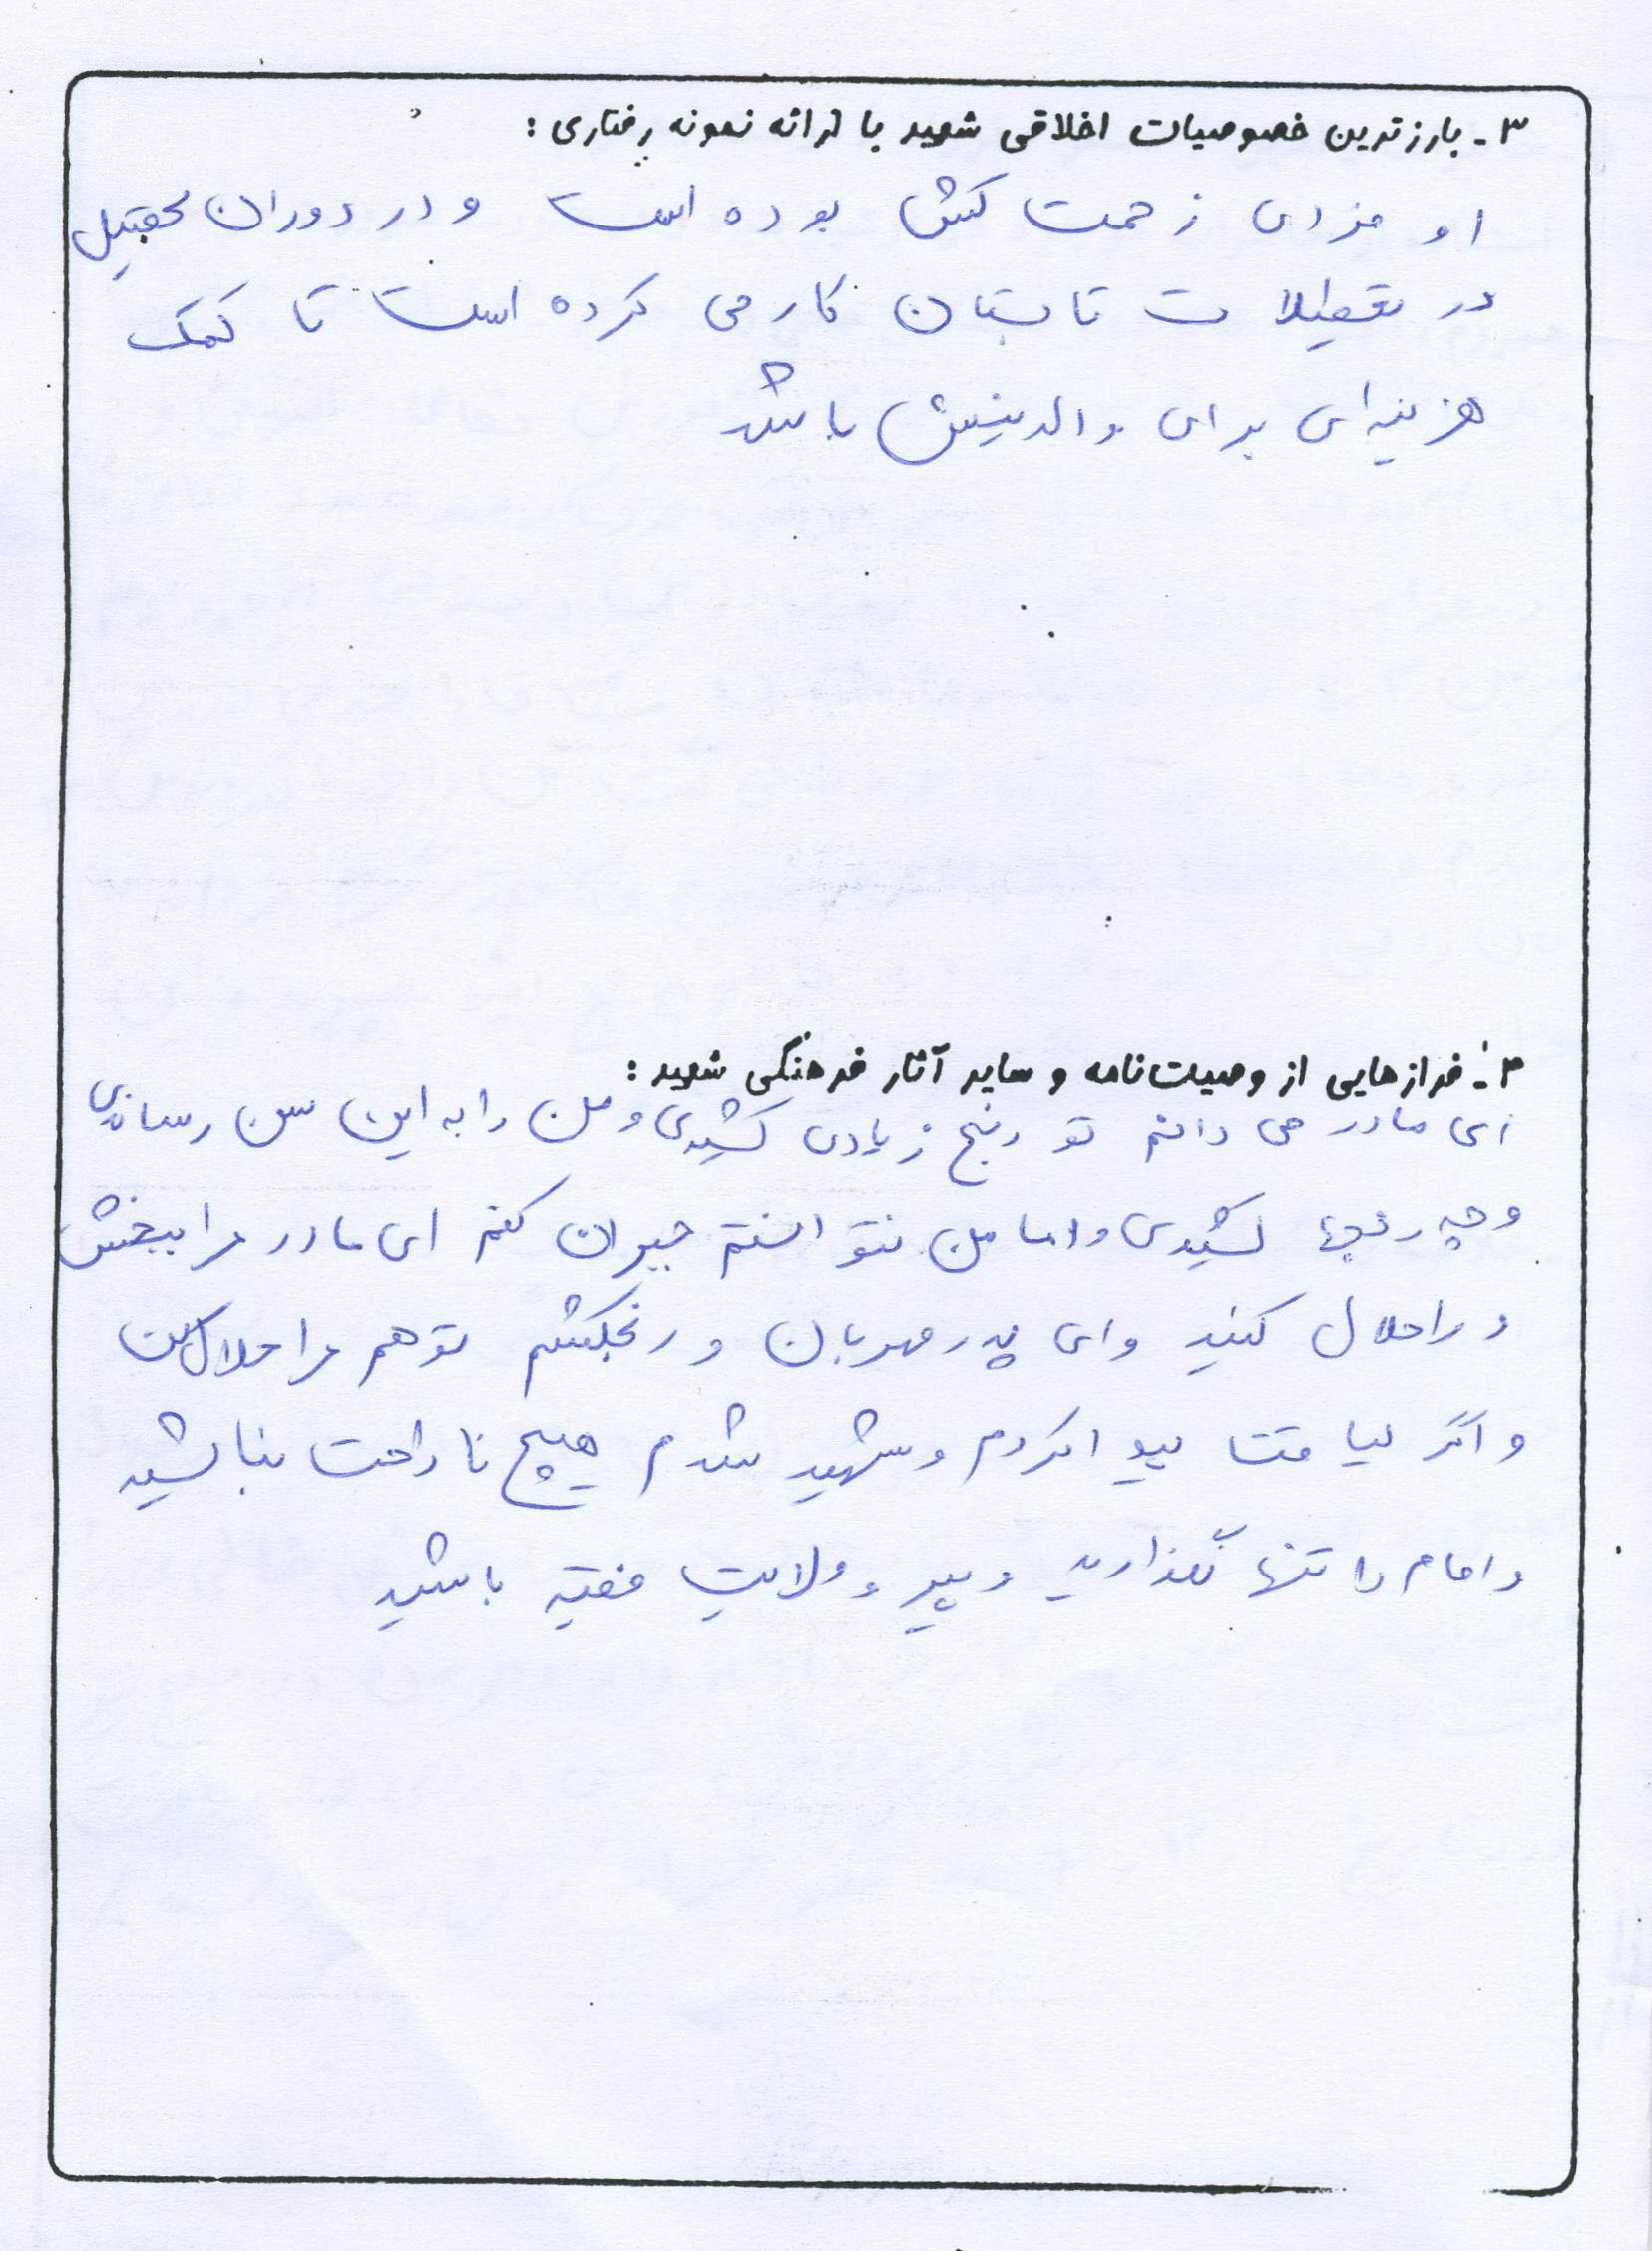 ۳- بارزترین خصوصیات اخلاقی شهید با ارائه نمونه رفتاری :
او فردی زحمت کش بوده است و در دوران تحصیل
در تعطیلات تابستان کار می کرده است تا کمک
هزینه‌ای برای والدینش باشد
۴- فرازهایی از وصیت‌نامه و سایر آثار فرهنگی شهید :
ای مادر می دانم تو رنج زیادی کشیدی و من را به این سن رساندی
و چه رنجها کشیدی و اما من نتوانستم جبران کنم ای مادر مرا ببخش
و مرا حلال کنید و ای پدر مهربان و رنجکشم تو هم مرا حلال کن
و اگر لیاقت پیدا کردم و شهید شدم هیچ ناراحت نباشید
و امام را تنها نگذارید و پیرو ولایت فقیه باشید